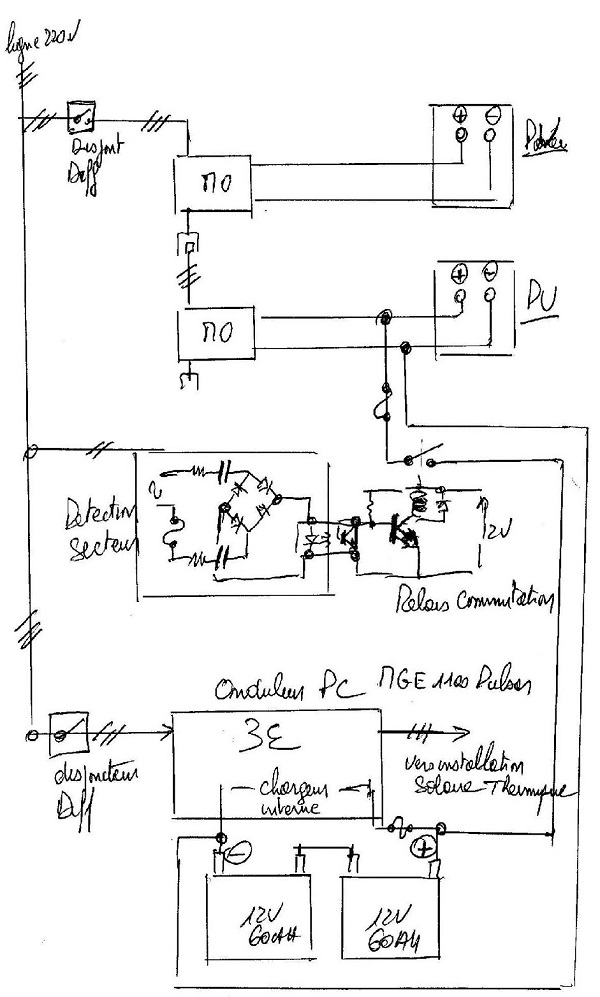 ligne 220V
Disjonct
Diff
MO
+ -
MO
+ -
PV
Détection
Secteur
12V
Relais Commutation
Onduleur PC MGE 1100 Pulsar
3E
disjoncteur
Diff
chargeur
interne
vers installation
Solaire Thermique
-
+
12V
60AH
12V
60AH